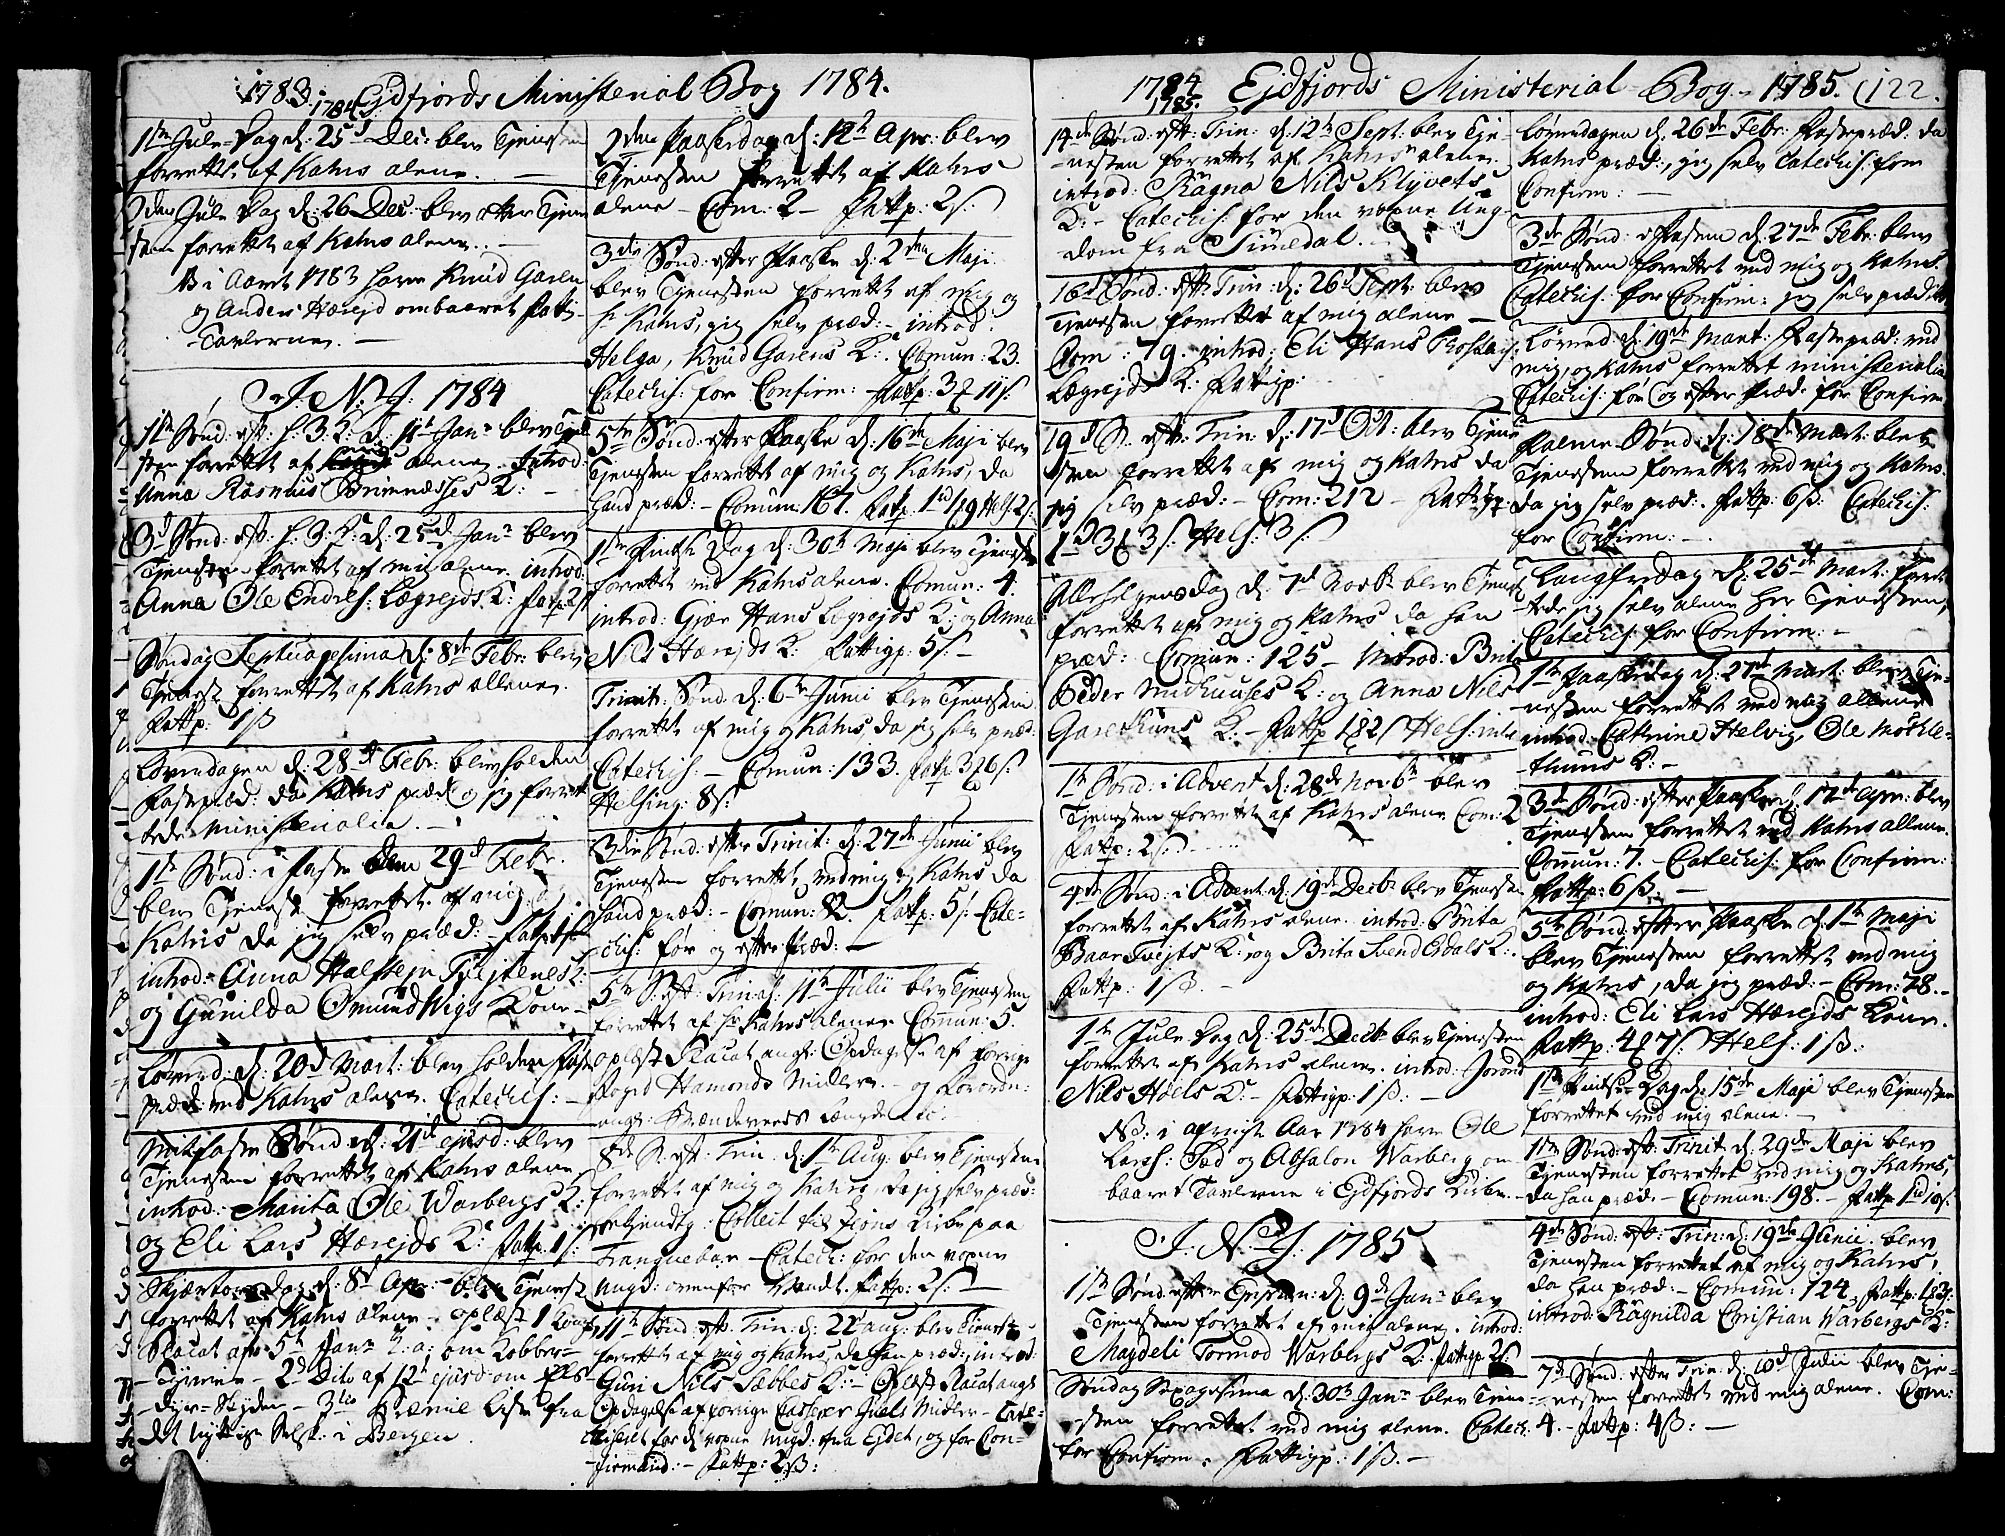 1783. 1784. Ejdfiords Ministerial Bog 1784.
1ste Jule-Dag d: 25d Dec: blev Tjenesten
forrettet af Kahrs alene. —
2den Jule Dag d: 26 Dec: blev etter Tjene
sten forrettet af Kahrs alene. —
NB i Aaret 1783 have Knud Garen
og Anders Hærejd ombaaret Fatt:
Tavlerne. —
J. N. J. 1784
1ste Sønd: eft: h. 3. K: d: 11t Janr blev Tjene
sten forrettet af alene. Introd:
Anna Rasmus Brimnesses K: —
3d Sønd: eft: h. 3. K: d: 25d Janr blev
Tjenesten forrettet af mig alene. introd:
Anna Ole Endres: Lægrejds K: Fatp 2s
Søndag Septuagesima d: 8de Febr: blev
Tjenest forrettet af Kahrs allene.
Fattp: 1ß
Løverdagen d: 28de Febr: blev holden
Fastepræd: da Kahrs præd: og jeg forret
tede ministerialia. —
1ste Sønd: i Faste den 29d Febr.
blev Tjenest forrettet af mig og
Kahrs da jeg selv præd: Fatp 1s
introd: Anna Halstejn Tvejtenes K:
og Gunilda Omund Wigs Kone —
Løverd: d: 20d Mart: blev holden Fast
præd: ved Kahrs alene. Catechis: —
Mitfaste Sønd: d: 21d ejusd: blev
Tjenesten forrettet af Kahrs alene.
introd: Marita Ole Warbergs K:
og Eli Lars Hærejds K: Fatp. 1s:
Skjærtorsdag d: 8d Apr: blev Tjenest
forrettet af Kahrs alene. oplæst 1 Kongl
Placat af 5t Janr h: a: om Kobber-
- 2d Dito af 12t ejusd om
Dyre-Skyden — 3tio Præmie Liste fra
det nyttige Selsk: i Bergen.
2den Paaskedag d: 12t Apr: blev
Tjenesten forrettet af Kahrs
alene — Com: 2 — Fattp: 2s.
3die Sønd: efter Paaske d: 2den Maji
blev Tjenesten forrettet af mig og
hr Kahrs, jeg selv præd: — introd:
Helga, Knud Garens K: Comun: 23.
Catechis: for Confirm: Fattp: 3 11s.
5te Sønd: efter Paaske d: 16de Maji blev
Tjenesten forrettet af mig og Kahrs, da
hand præd: — Comun: 167. Fattp.
1ste Pintse Dag d: 30te Maji blev Tjenesten
forrettet ved Kahrs alene. Comun: 4.
introd: Gjør Hans Legrejds K: og Anna
Nils Hærejds K: Fattigp: 5s: —
Trinit: Sønd: d: 6te Junii blev Tjenesten
forrettet af mig og Kahrs, da jeg selv præd:
Catechis: — Comun: 133. Fattp 3 6s:
Helsing: 8s:
3die Sønd: efter Trinit: d: 27de Junii blev
Tjenesten forrettet ved mig og Kahrs da
hand præd: — Comun: 82. Fattp: 5s. Cate-
chis: før og efter Præd: —
5te S: eft: Trinit: d: 11te Julii blev Tjenesten
forrettet af hr Kahrs alene. Comun: 5.
oplæst Placat ang: Opdagelse af forrige
Foged Hamonds Midler. — og Forordn:
ang: Brændeveeds Længde etc:
8de S: eft: Trin: d: 1ste Aug: blev Tjenesten
forrettet af mig og Kahrs, da jeg selv præd:
Collect til Zions Kirke paa
Tranquebar — Catech: for den voxne
Ungd: ovenfor Vandet. Fattp: 2s: —
11te Sønd: eft: Trin: d: 22 Aug: blev Tjenest
forrettet af mig og Kahrs, da han præd: introd:
Guri Nils Sæbbes K: — Oplæst Placat angl
Opdagelse af forrige Casserer Juels Midler — Cate-
chiseret for d: voxne Ungd: fra Ejdet, og for Con-
firmand: — Fattp: 2ß:
1784. 1785. Ejdfjords Ministerial — Bog — 1785. (122.
14de Sønd: eft: Trin: d: 12te Sept: blev Tje-
nesten forrettet af Kahrs alene.
introd: Ragna Nils Klyvets
K: — Catechis: for den voxne Ung-
dom fra Simedal. —
16d Sønd: eft: Trin: d: 26d Sept: blev
Tjenesten forrettet af mig alene —
Com: 79. introd: Eli Hans
Lægrejds K: Fattigp:
19d S. eft: Trin: d: 17d Oct: blev Tjene
sten forrettet af mig og Kahrs da
jeg selv præd: — Com: 212 — Fattigp
1d 3 3s: Hels: 3s.
Allehelgensdag d: 7d Novbr blev Tjenest
forrettet af mig og Kahrs da han
præd: Comun: 125 — Introd: Brita
Peder Midhuuses K: og Anna Nils
Garethuns K: — Fattp 1 82s Hels:
1te Sønd: i Advent d: 28de Novbr blev
Tjenesten forrettet af Kahrs alene. Com: 2
Fattp: 2s:
4de Sønd: i Advent d: 19de Decbr blev Tjenesten
forrettet af Kahrs alene. introd: Brita
Baar Tvejts K: og Brita Svend Erdals K:
Fattp: 1ß. —
1te Jule Dag d: 25de Decbr blev Tjenesten
forrettet af Kahrs alene. introd: Jorond
Nils Hoels K: — Fattigp: 1ß: —
NB: i afvigte Aar 1784 have Ole
Larss: Sæd og Absalon Warberg om
baaret Tavlerne i Ejdfjords Kirke. —
J. N. J. 1785
1ste Sønd: efter Epiphan: d: 9de Janr blev
Tjenesten forrettet af mig alene. introd:
Magdeli Tormod Warbergs K: Fattigp 2s.
Søndag Sexagesima d: 30te Janr blev Tjene-
sten forrettet ved mig alene. Catech:
for Confirm. Fattigp: 1ß. —
Løverdagen d: 26de Febr: Fastepræd: da
Kahrs præd:, jeg selv Catechis: for
Confirm: —
3de Sønd: i Fasten d: 27de Febr: blev
Tjenesten forrettet ved mig og Kahrs.
Catechis: for Confirm: jeg selv præd:
Løverd: d: 19de Mart: Fastepræd: ved
mig, og Kahrs forrettet ministerialia
Catechis: før og efter Præd: for Confirm
Palme-Sønd: d: 18d Mart: blev
Tjenesten forrettet ved mig og Kahrs.
da jeg selv præd: Fattp: 6ß: Catechis:
for Confirm: —
Langfredag d: 25de Mart: forret-
tede jeg selv alene her Tjenesten,
Catechis: for Confirm: —
1te Paaskedag d: 27d Mart: blev Tje-
nesten forrettet ved mig allene
introd: Cathrine Helvig, Ole Mochle-
thuns K: —
3d Sønd: efter Paaske d: 17de Apr: blev
Tjenesten forrettet ved Kahrs allene.
Comun: 7. — Catechis: for Confirm:
Fattp: 6ß: —
5te Sønd: efter Paaske d: 1te Maji
blev Tjenesten forrettet ved mig
og Kahrs, da jeg præd: — Com: 78. —
introd: Eli Lars Hærejds Kone.
Fattp: 4 7s. Hels: 1ß:
1te Pintse-Dag d: 15de Maji blev Tjenesten
forrettet ved mig alene. —
1ste Sønd: eft: Trinit: d: 29de Maji blev
Tjenesten forrettet ved mig og Kahrs,
da han præd: — Comun: 198. — Fattp: 1d 10s:
4de Sønd: eft: Trin: d: 19de Junii blev
Tjenesten forrettet af mig og Kahrs,
da han præd: — Comun: 124. Fattp: 1 83s.
introd: Ragnilda Christian Warbergs K:
7d Sønd: efter Trin: d: 10d Julii blev Tje-
nesten forrettet ved mig alene. Com:
4. — Fattp: 4ß: —